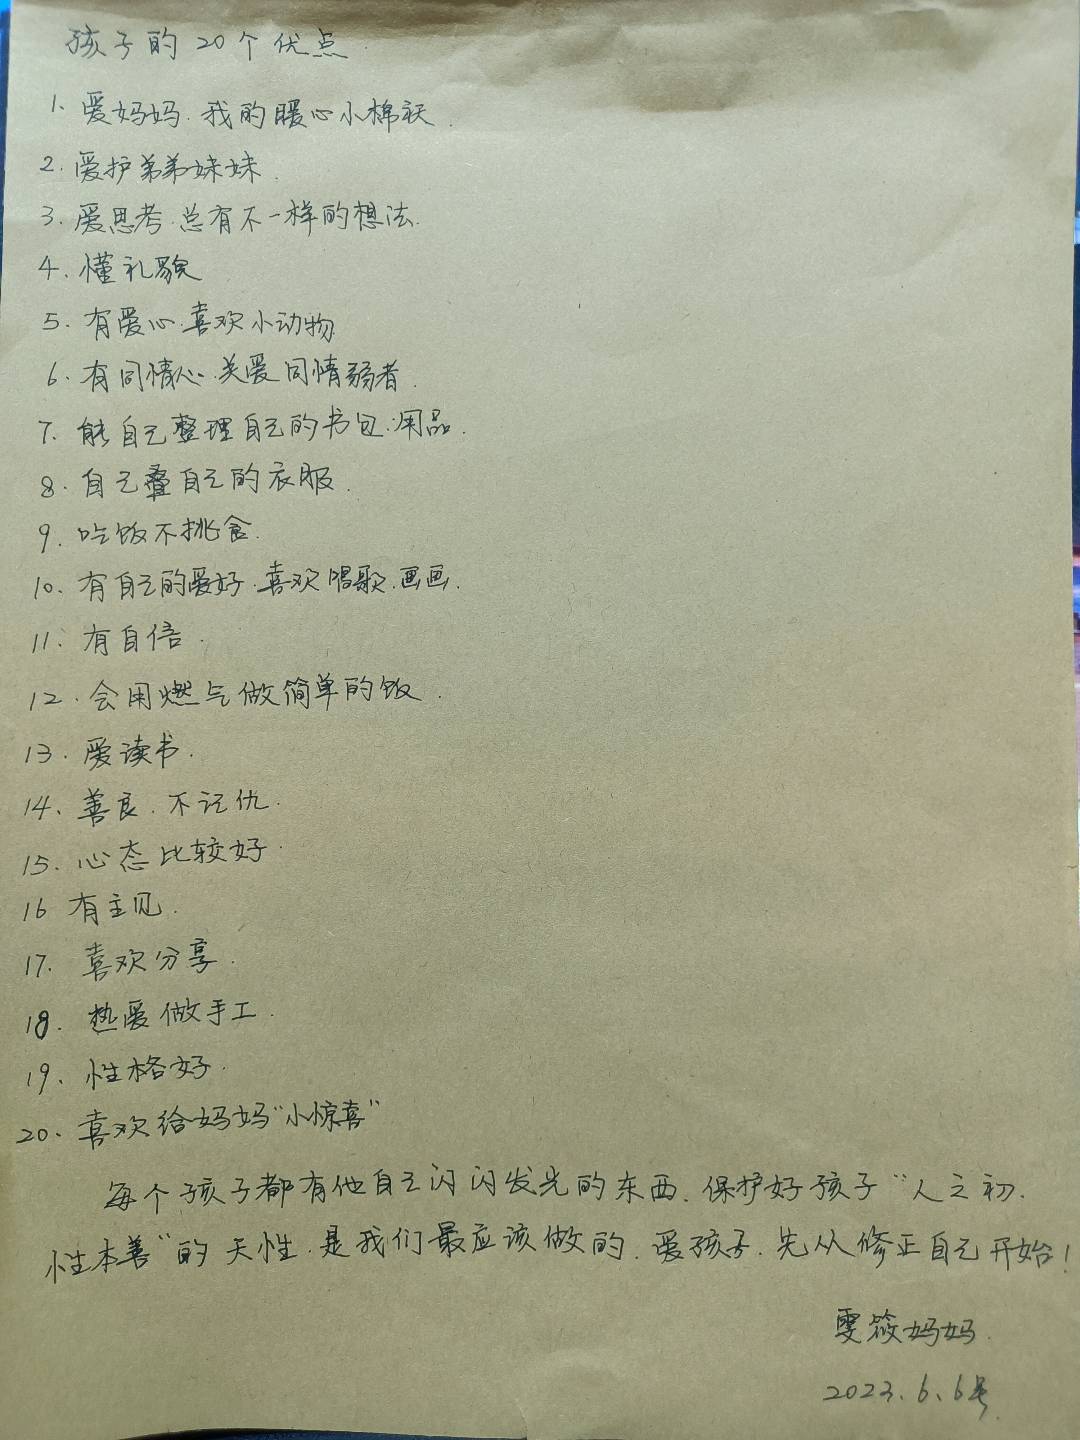 孩子的20个优点
1. 爱妈妈.我的暖心小棉袄.
2. 爱护弟弟妹妹.
3. 爱思考.总有不一样的想法.
4. 懂礼貌
5. 有爱心.喜欢小动物
6. 有同情心.关爱同情弱者.
7. 能自己整理自己的书包.用品.
8. 自己叠自己的衣服.
9. 吃饭不挑食.
10. 有自己的爱好.喜欢唱歌.画画.
11. 有自信.
12. 会用燃气做简单的饭.
13. 爱读书.
14. 善良.不记仇.
15. 心态比较好.
16 有主见.
17. 喜欢分享.
18. 热爱做手工.
19. 性格好.
20. 喜欢给妈妈“小惊喜”
每个孩子都有他自己闪闪发光的东西.保护好孩子“人之初.
性本善”的天性.是我们最应该做的.爱孩子.先从修正自己开始!
雯筱妈妈.
2023.6.6号.